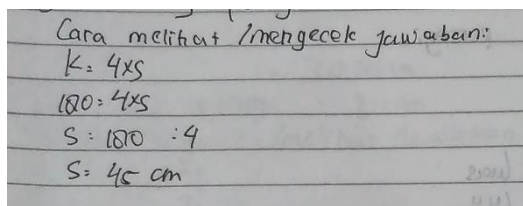 Cara melihat /mengecek jawaban:
K= 4xs
180= 4xs
S= 180 :4
S= 45 cm